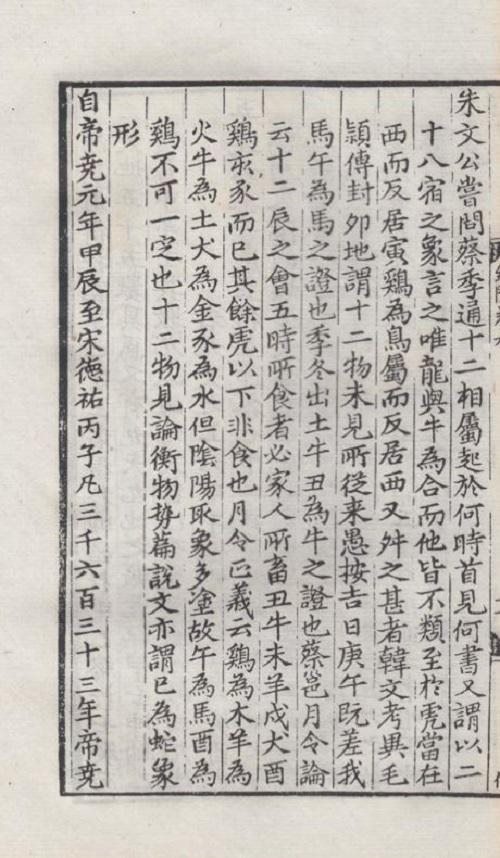 朱文公嘗問蔡季通十二相屬起於何時首見何書又謂以二
十八宿之象言之唯龍與牛為合而他皆不類至於虎當在
西而反居寅鷄為鳥屬而反居西又舛之甚者韓文考異毛
頴傳封夘地謂十二物未見所從来愚按吉日庚午旣差我
馬午為馬之證也季冬出土牛丑為牛之證也蔡邕月令論
云十二辰之會五時所食者必家人所畜丑牛未羊戌犬酉
鷄亥豕而已其餘虎以下非食也月令正義云鷄為木羊為
火牛為土犬為金豕為水但陰陽取象多塗故午為馬酉為
鷄不可一定也十二物見論衡物勢篇說文亦謂巳為蛇象
形
自帝尭元年甲辰至宋德祐丙子凡三千六百三十三年帝尭